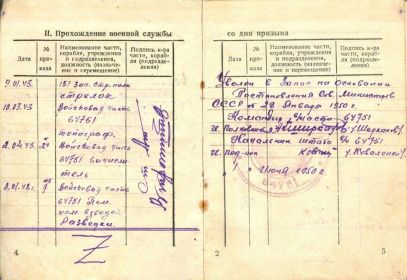 II. Прохождение военной службы
Дата
№ при-каза
Наименование части,
корабля, учреждения
и подразделения,
должность (назначе-
ние и перемещение)
Подпись к-ра
части, кораб-
ля (подразде-
ления)
9.01.43.
151 Зап. Стр. полк
стрелок
18.03.43
Войсковая часть
64751
топограф.
24
Войсковая часть
64751 вычисли
тель
Войсковая часть
64751 Пом.
ком. взвода
Разведки.
4
со дня призыва
Дата
№ при-каза
Наименование части,
корабля, учреждения
и подразделения,
должность (назначе-
ние и перемещение)
Подпись к-ра
части, кораб-
ля (подразде-
ления)
Уволен в Запас на основании
Постановления Сов. Министров
СССР от 28 Января 1950 г.
Командир 64751
Начальник штаба 64751
Июня 1950 г.
2
5